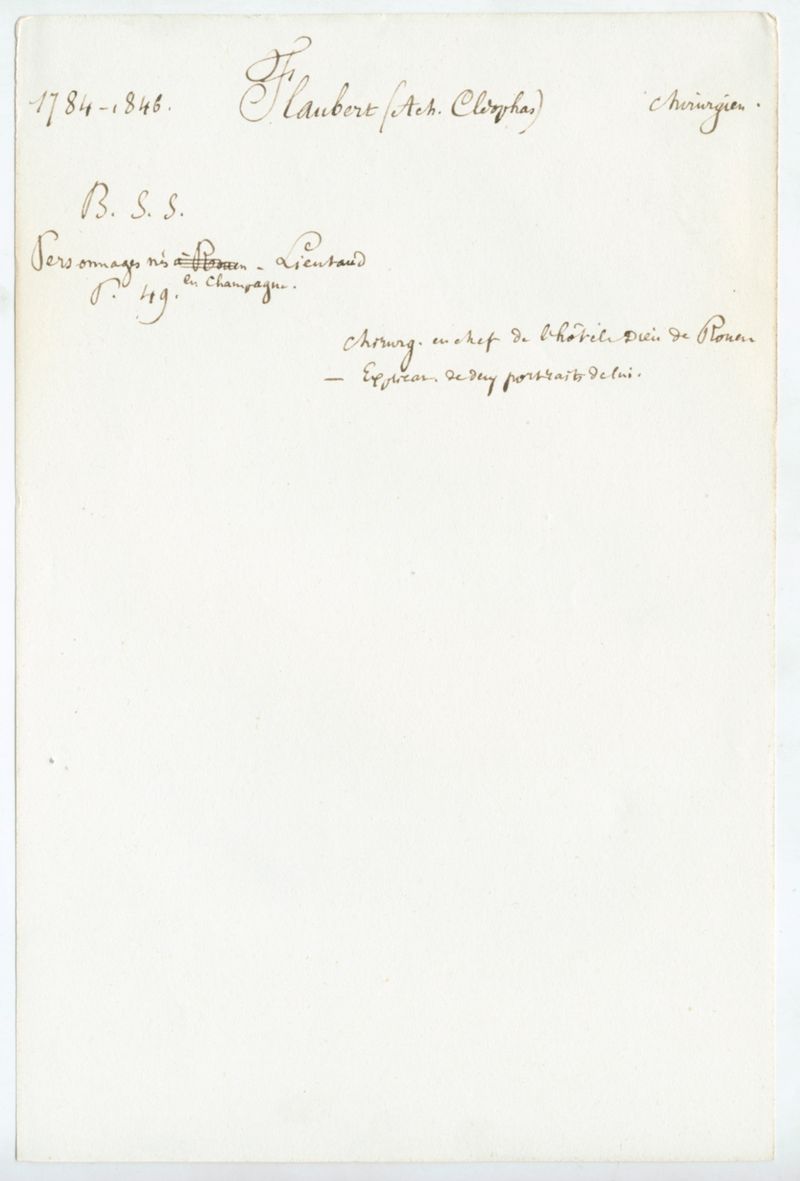 1784-1846. Flaubert (Ach. Cléophas) chirurgien.
B. S. S.
Personnages nés à Rouen - Lieutaud
en Champagne.
P. 49.
chirurg. en chef de l'hôtel Dieu de Rouen
— de deux portraits de lui.